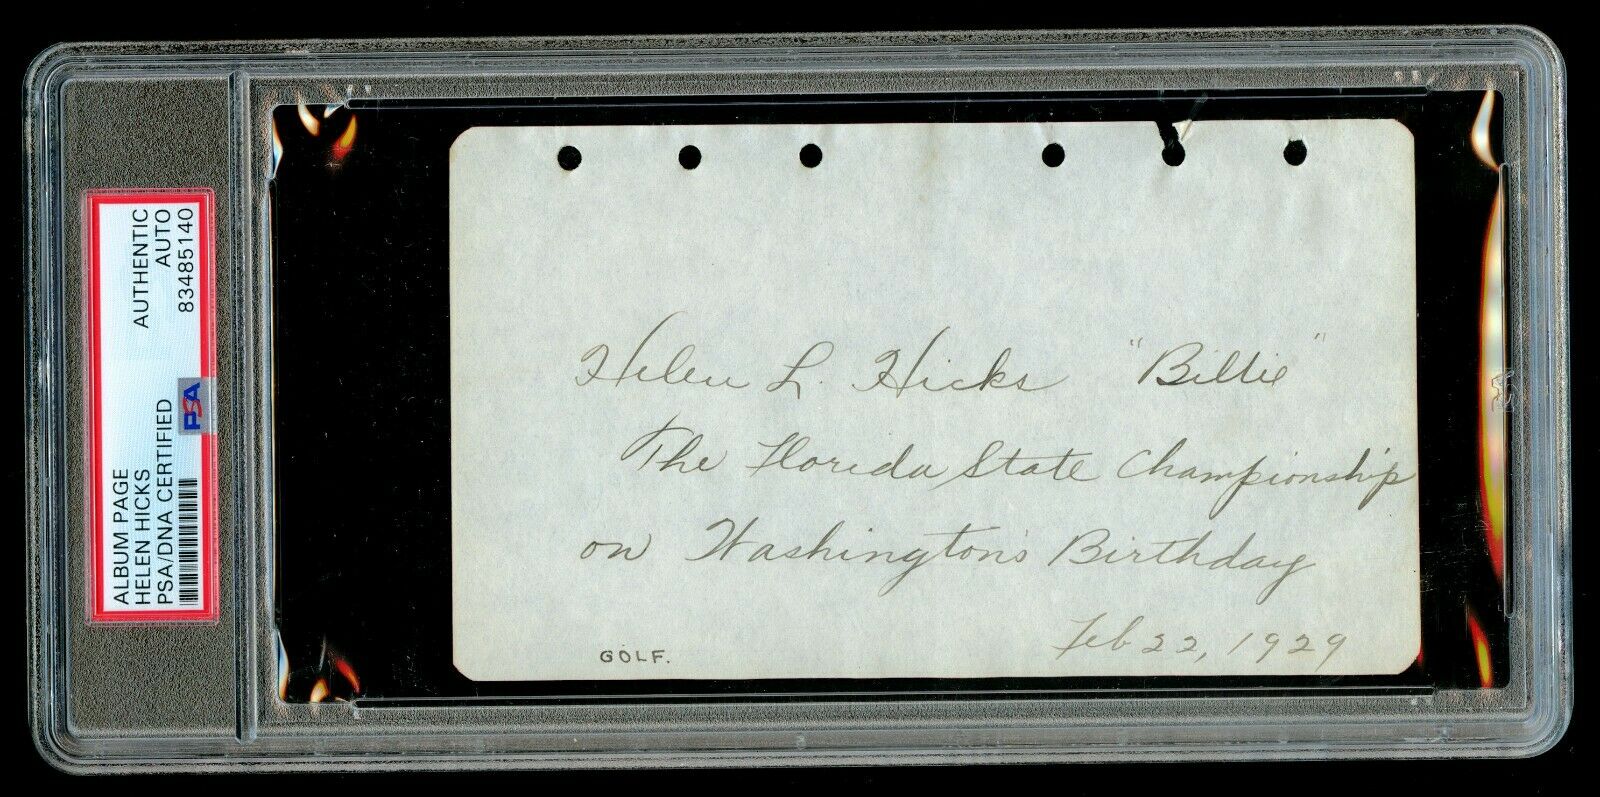 ALBUM PAGE
HELEN HICKS
PSA/DNA CERTIFIED
AUTHENTIC
AUTO
83485140
PSA
Helen L. Hicks "Billie"
The Florida State Championship
on Washington's Birthday
Feb 22, 1929
GOLF.